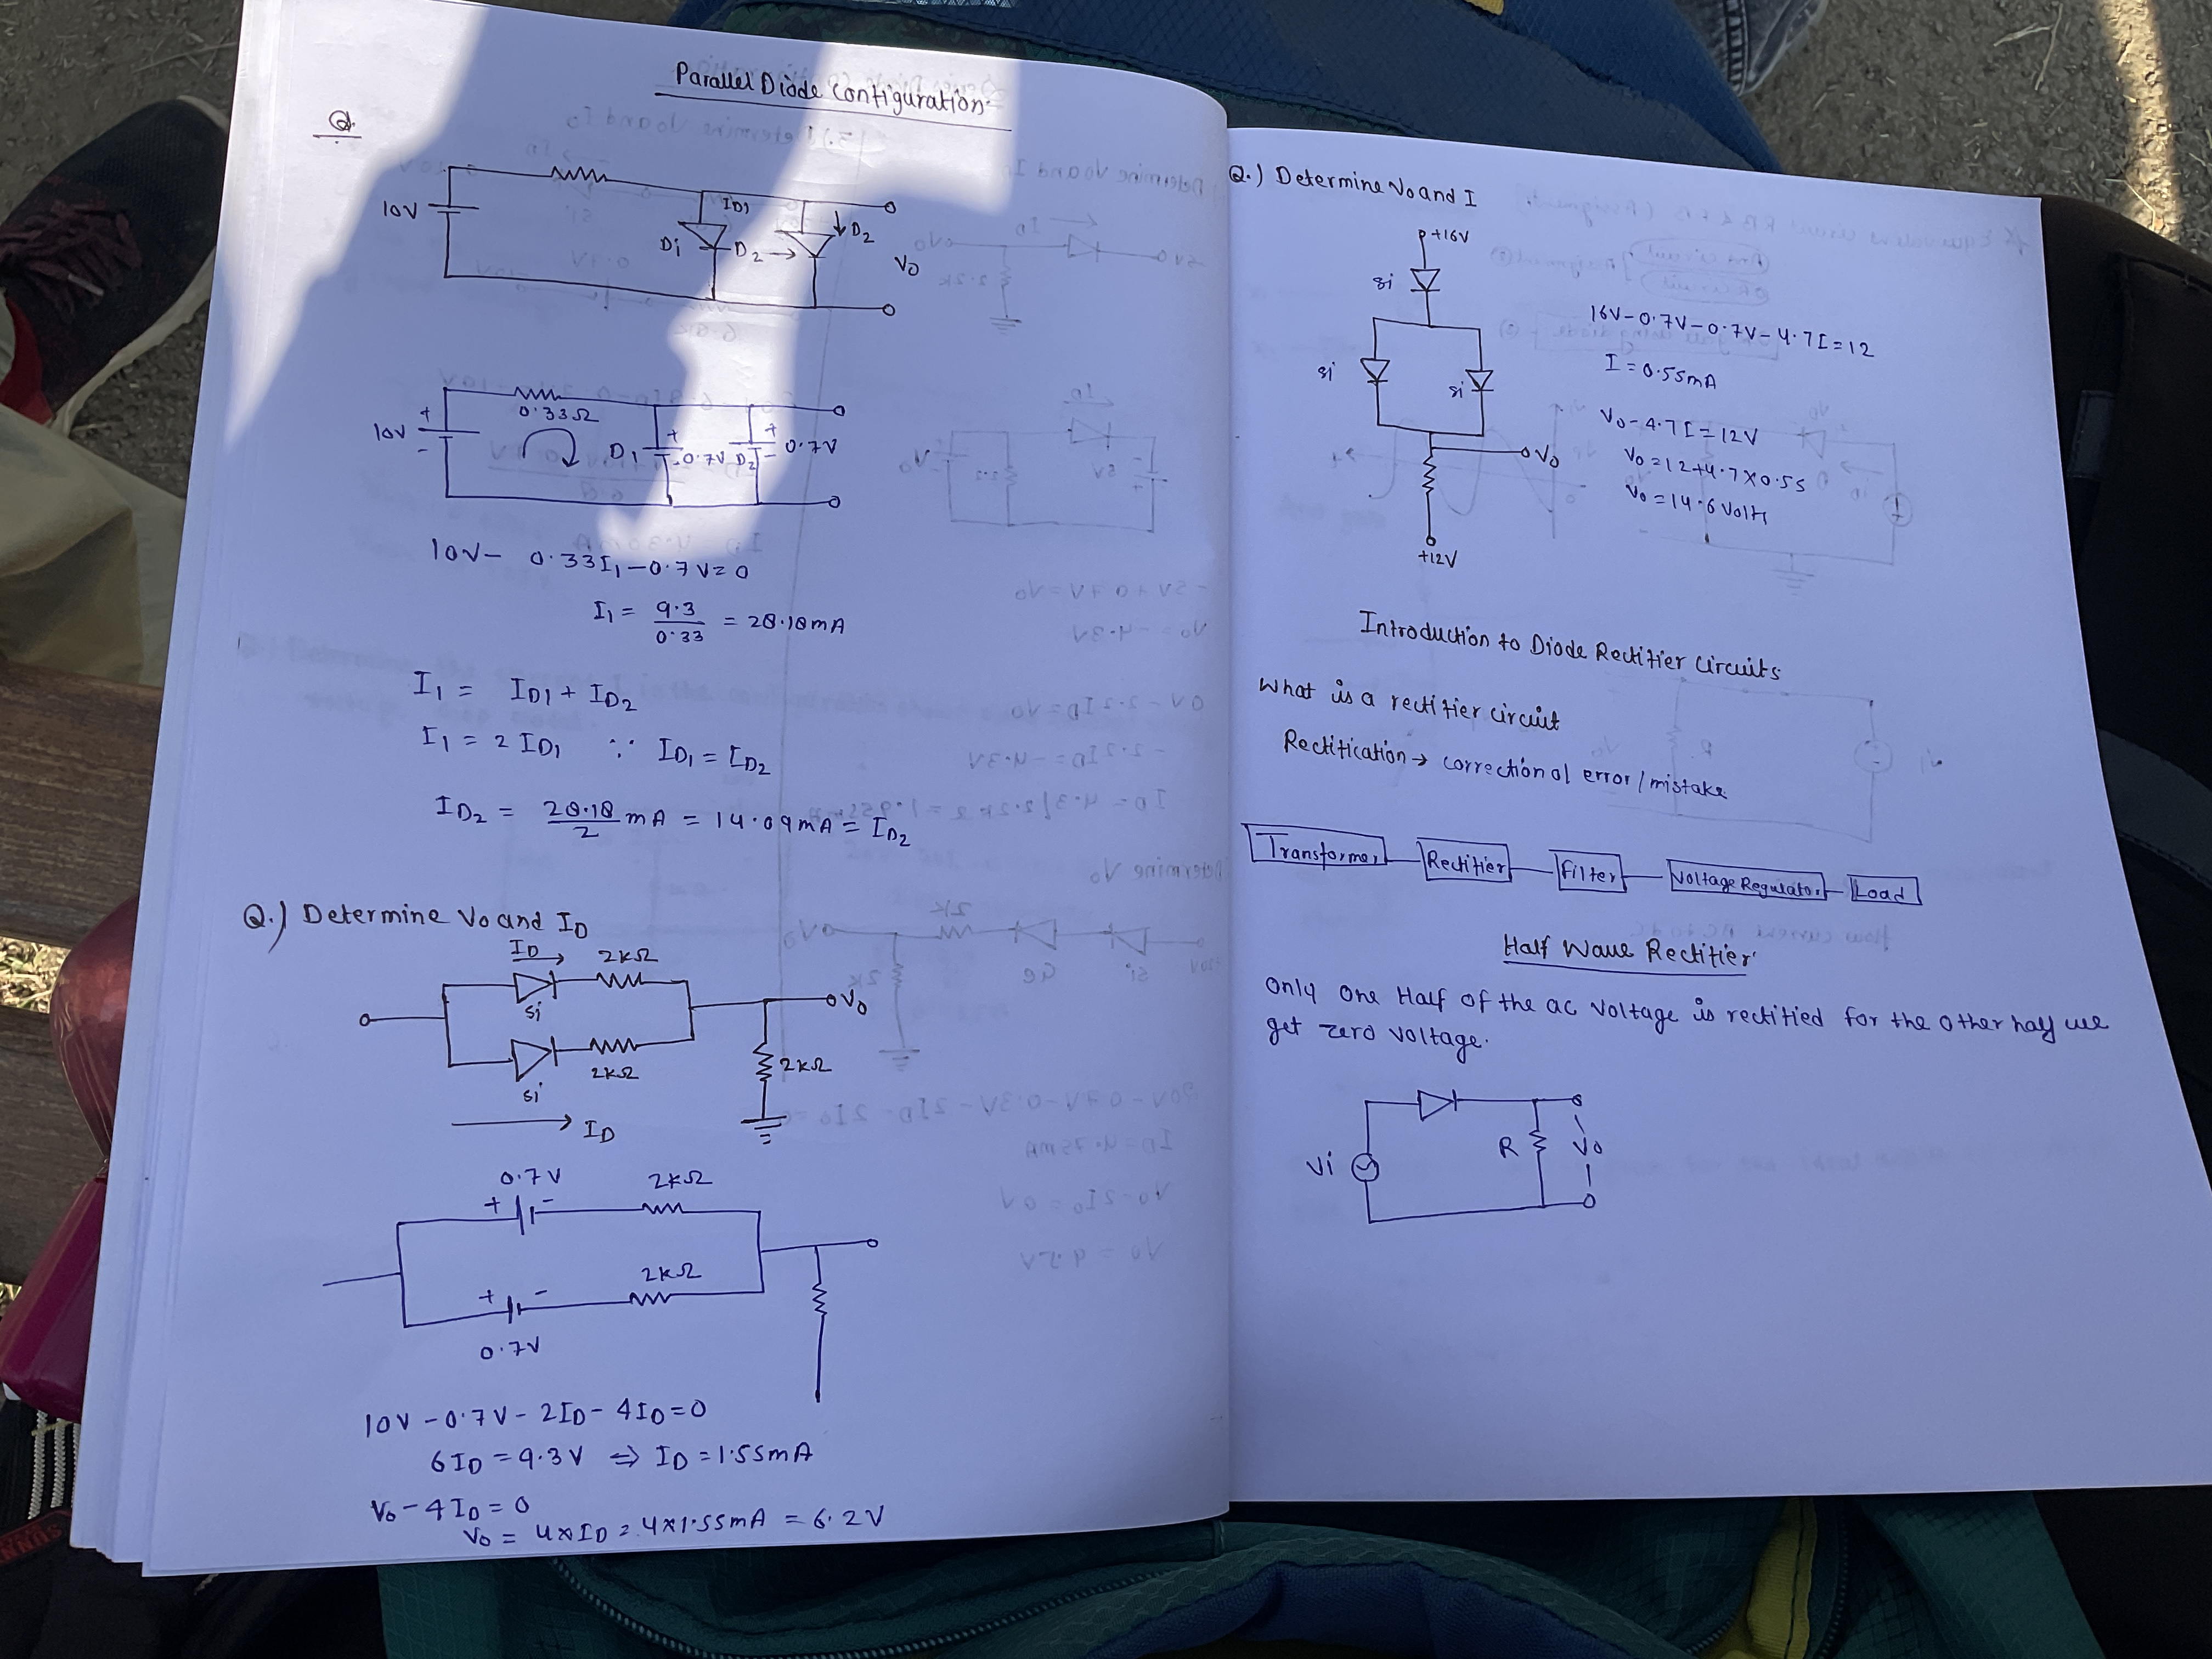 Parallel Diode Configuration
Q.
10V
ID1
D1
D2 →
↓ D2
Vo
+
10V
-
0.33Ω
D1
+
- 0.7V
D2
+
-
0.7V
10V - 0.33I1 - 0.7V = 0
I1 = 9.3/0.33 = 28.18mA
I1 = ID1 + ID2
I1 = 2 ID1 ∵ ID1 = ID2
ID2 = 28.18/2 mA = 14.09mA = ID2
Q.) Determine Vo and ID
ID →
2kΩ
Si
Vo
2kΩ
Si
2kΩ
→ ID
0.7V
+ -
2kΩ
2kΩ
+ -
0.7V
10V - 0.7V - 2ID - 4ID = 0
6ID = 9.3V ⇒ ID = 1.55mA
Vo - 4ID = 0
Vo = 4×ID = 4×1.55mA = 6.2V
Q.) Determine Vo and I
+16V
Si
Si
Si
Vo
+12V
16V - 0.7V - 0.7V - 4.7I = 12
I = 0.55mA
Vo - 4.7I = 12V
Vo = 12 + 4.7 × 0.55
Vo = 14.6 Volts
Introduction to Diode Rectifier Circuits
What is a rectifier circuit
Rectification → correction of error / mistake
Transformer Rectifier Filter Voltage Regulator Load
Half Wave Rectifier
Only One Half of the ac voltage is rectified for the other half we
get zero voltage.
Vi
R
Vo